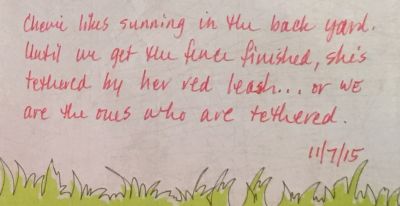 Chewie likes sunning in the back yard.
Until we get the fence finished, she's
tethered by her red leash... or WE
are the ones who are tethered.
11/7/15